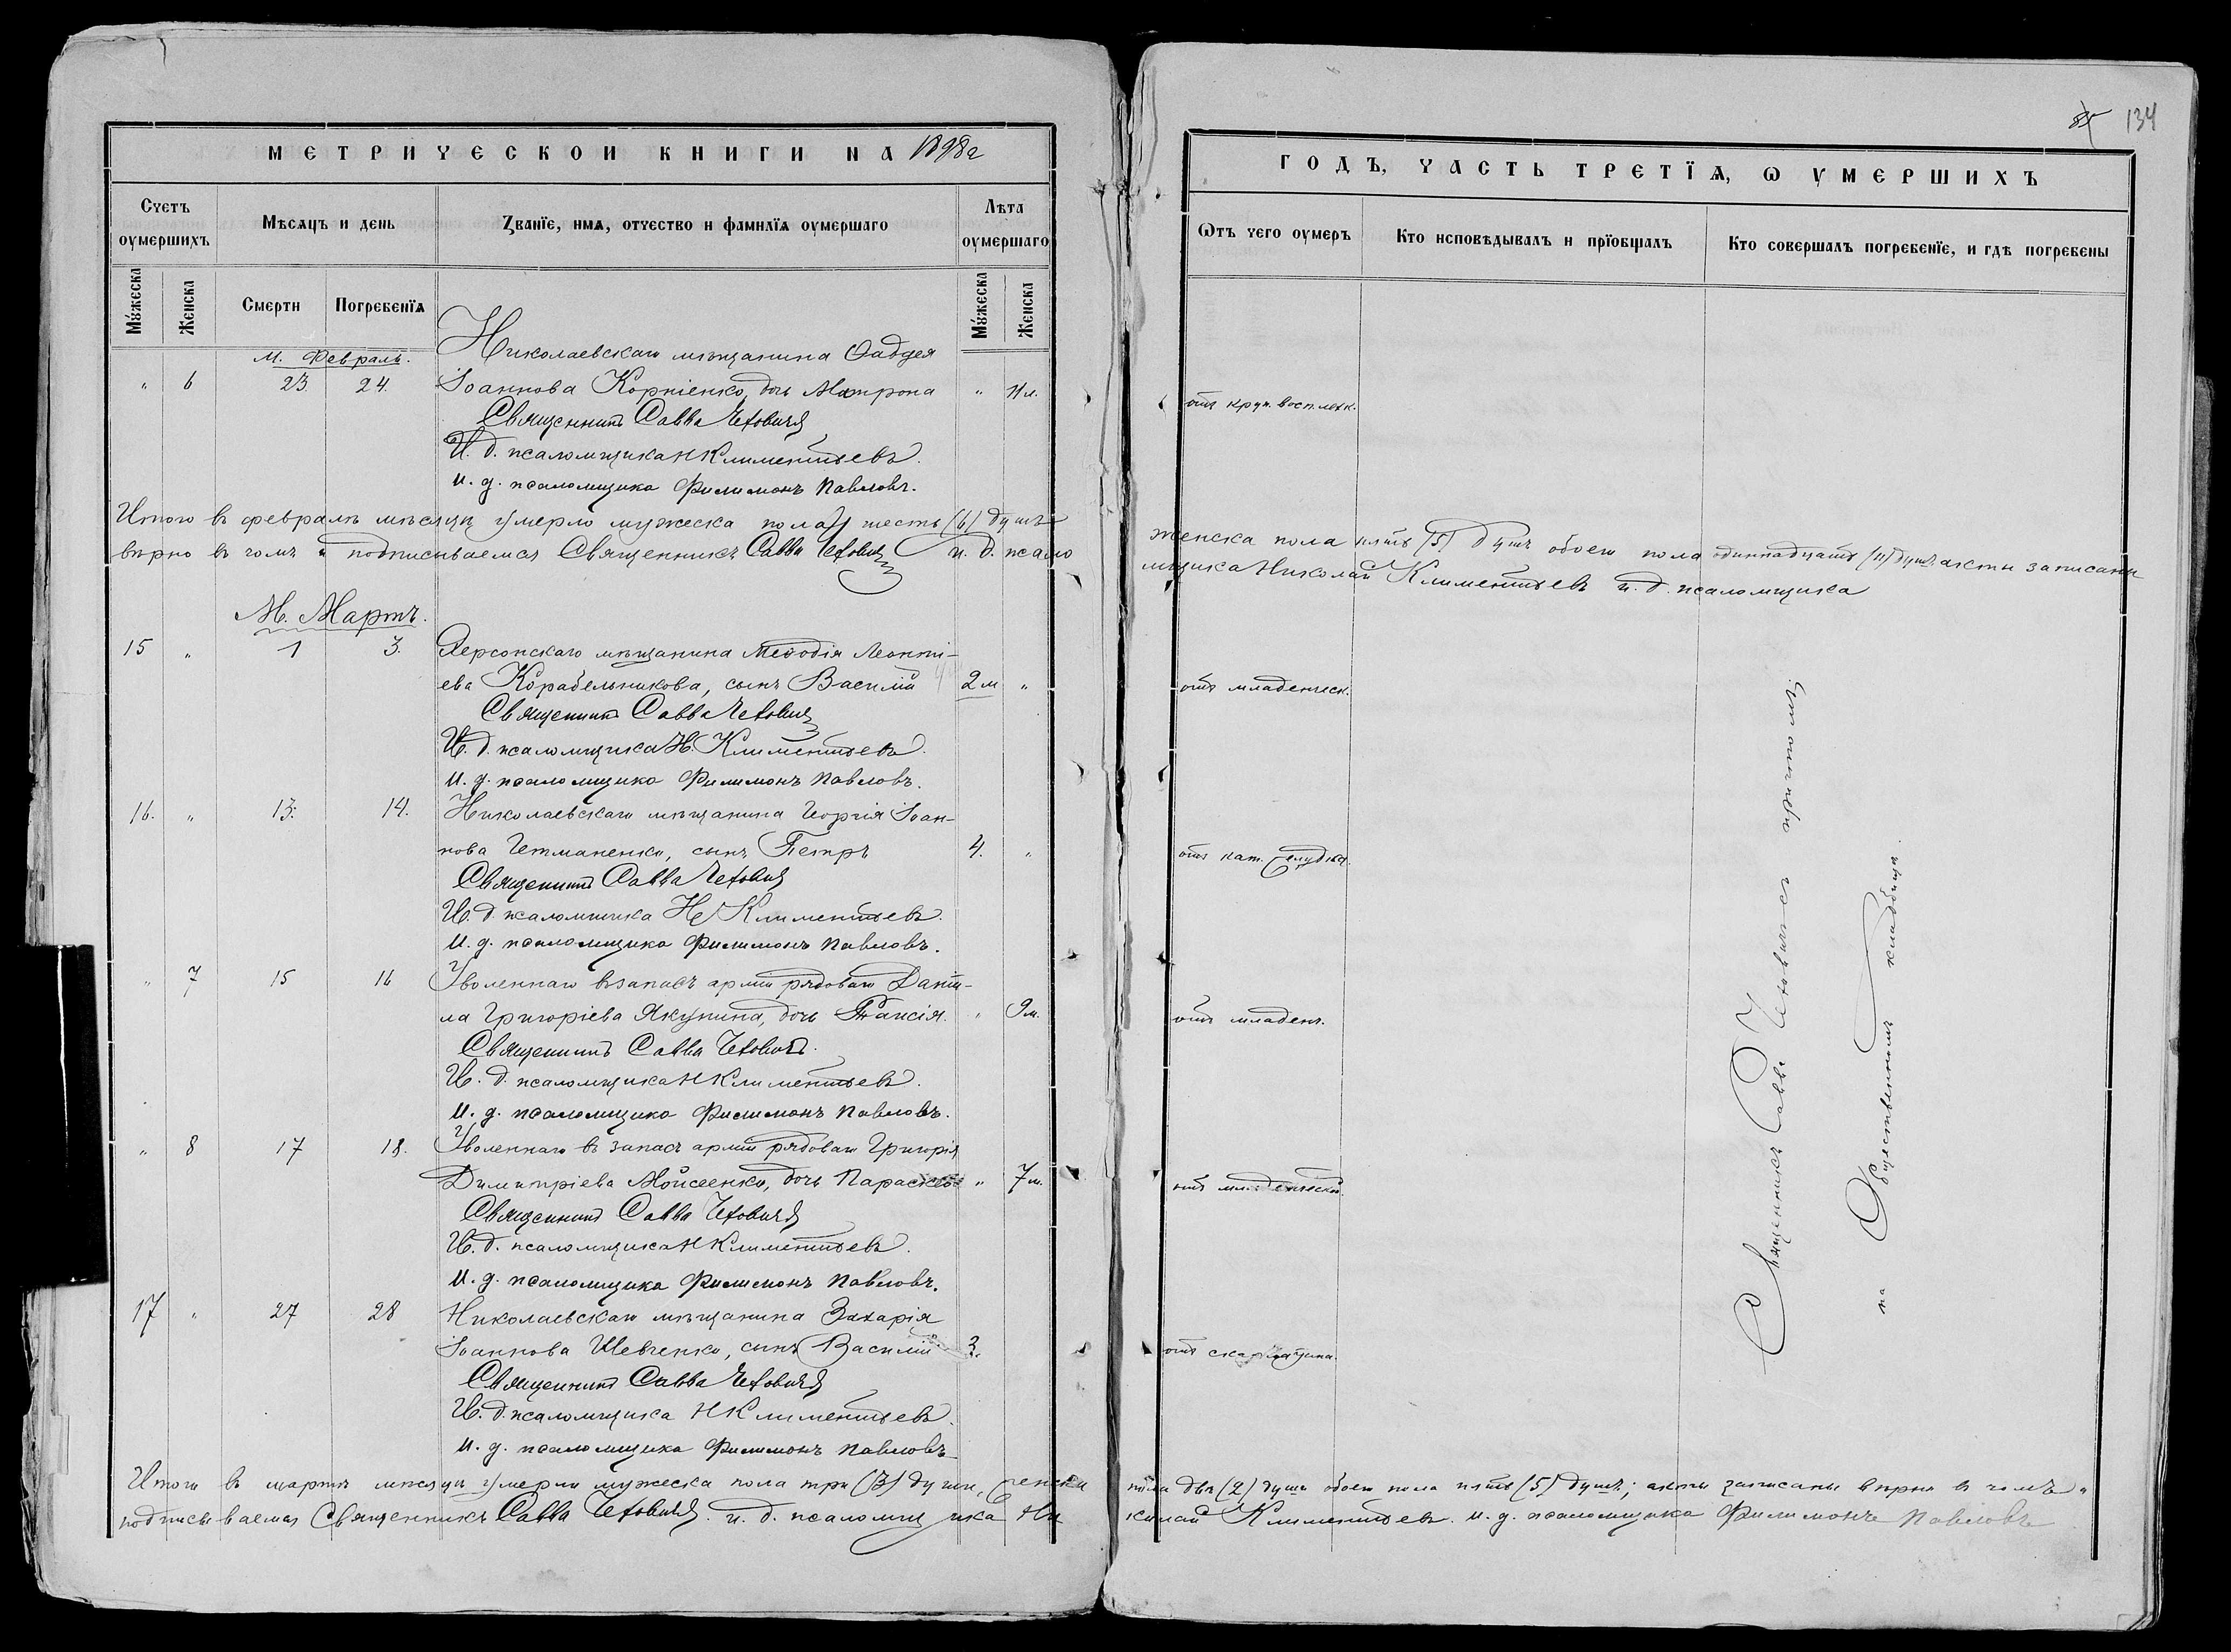 85 134
МЕТРИЧЕСКОЙ КНИГИ НА 1898г
ГОДЪ, ЧАСТЬ ТРЕТЇѦ, Ѡ УМЕРШИХЪ
Счетъ оумершихъ
Мѣсѧцъ и день
Званїе, имѧ, отчество и фамилїѧ оумершаго
Лѣта оумершаго
Ѿтъ чего оумеръ
Кто исповѣдывалъ и прїобщалъ
Кто совершалъ погребенїе, и гдѣ погребены
Мужеска
Женска
Смерти
Погребенїѧ
Мужеска
Женска
М. Февраль.
Николаевскаго мѣщанина Ѳаддея
" 6 23. 24. Іоаннова Корніенко, дочь Матрона " 11 л. отъ круп. воспл. легк.
Священникъ Савва Чеховичъ
И. д. псаломщика Н Климентьевъ.
И. д. псаломщика Филимонъ Павловъ.
Итого въ февралѣ мѣсяцѣ умерло мужеска пола шесть (6) душъ женска пола пять (5) душъ обоего пола одиннадцать (11) душъ акты записаны
вѣрно въ чемъ и подписываемся Священникъ Савва Чеховичъ и. д. псаломщика Николай Климентьевъ и. д. псаломщика
М. Мартъ.
15 " 1 3. Херсонскаго мѣщанина Меѳодія Леонті-
ева Корабельникова, сынъ Василій 2 м " отъ младенческ.
Священникъ Савва Чеховичъ
И. д. псаломщика Н. Климентьевъ.
И. д. псаломщика Филимонъ Павловъ.
16. " 13. 14. Николаевскаго мѣщанина Георгія Іоан-
нова Гетманенко, сынъ Петръ 4. " отъ кат. желудка.
Священникъ Савва Чеховичъ
И. д. псаломщика Н Климентьевъ.
И. д. псаломщика Филимонъ Павловъ.
" 7 15 16 Уволеннаго въ запасъ арміи рядоваго Даніи-
ла Григоріева Якунина, дочь Таисія. " 9 м. отъ младенч.
Священникъ Савва Чеховичъ.
И. д. псаломщика Н Климентьевъ.
И. д. псаломщика Филимонъ Павловъ.
" 8 17 18. Уволеннаго въ запасъ арміи рядоваго Григорія
Димитріева Мойсеенко, дочь Параскева " 7 м. отъ младенческой.
Священникъ Савва Чеховичъ
И. д. псаломщика Н Климентьевъ.
И. д. псаломщика Филимонъ Павловъ.
17 " 27 28 Николаевскаго мѣщанина Захарія
Іоаннова Шевченко, сынъ Василій 3. отъ скарлатина.
Священникъ Савва Чеховичъ
И. д. псаломщика Н Климентьевъ.
И. д. псаломщика Филимонъ Павловъ
Итого въ мартѣ мѣсяцѣ умерло мужеска пола три (3) души, женска пола двѣ (2) души обоего пола пять (5) душъ; акты записаны вѣрно въ чемъ и
подписываемся Священникъ Савва Чеховичъ. и. д. псаломщика Николай Климентьевъ. И. д. псаломщика Филимонъ Павловъ
Священникъ Савва Чеховичъ съ причтомъ
на Общественномъ кладбищѣ.